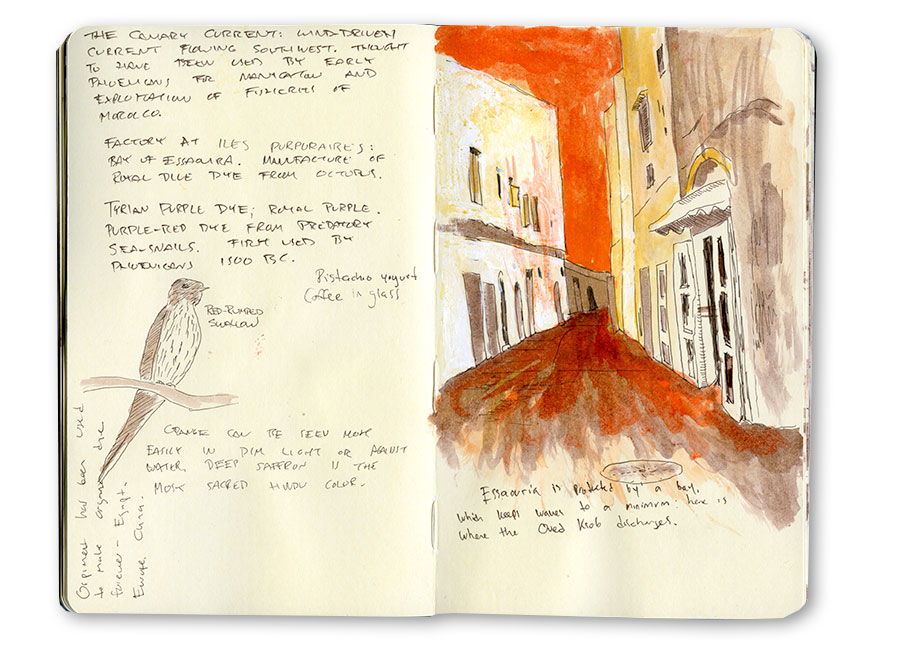 THE CANARY CURRENT: WIND-DRIVEN
CURRENT FLOWING SOUTHWEST. THOUGHT
TO HAVE BEEN USED BY EARLY
PHOENICIANS FOR NAVIGATION AND
EXPLOITATION OF FISHERIES OF
MOROCCO.
FACTORY AT ILES PURPURAIRES:
BAY OF ESSAOUIRA. MANUFACTURE OF
ROYAL BLUE DYE FROM OCTOPUS.
TYRIAN PURPLE DYE; ROYAL PURPLE.
PURPLE-RED DYE FROM PREDATORY
SEA-SNAILS. FIRST USED BY
PHOENICIANS 1500 BC.
Pistachio yogurt
Coffee in glass
RED-RUMPED
SWALLOW
ORANGE CAN BE SEEN MOST
EASILY IN DIM LIGHT OR AGAINST
WATER. DEEP SAFFRON IS THE
MOST SACRED HINDU COLOR.
Orpiment has been used
to make orange dye
forever - Egypt,
Europe, China.
Essaouira is protected by a bay,
which keeps waves to a minimum: here is
where the Oued Ksob discharges.